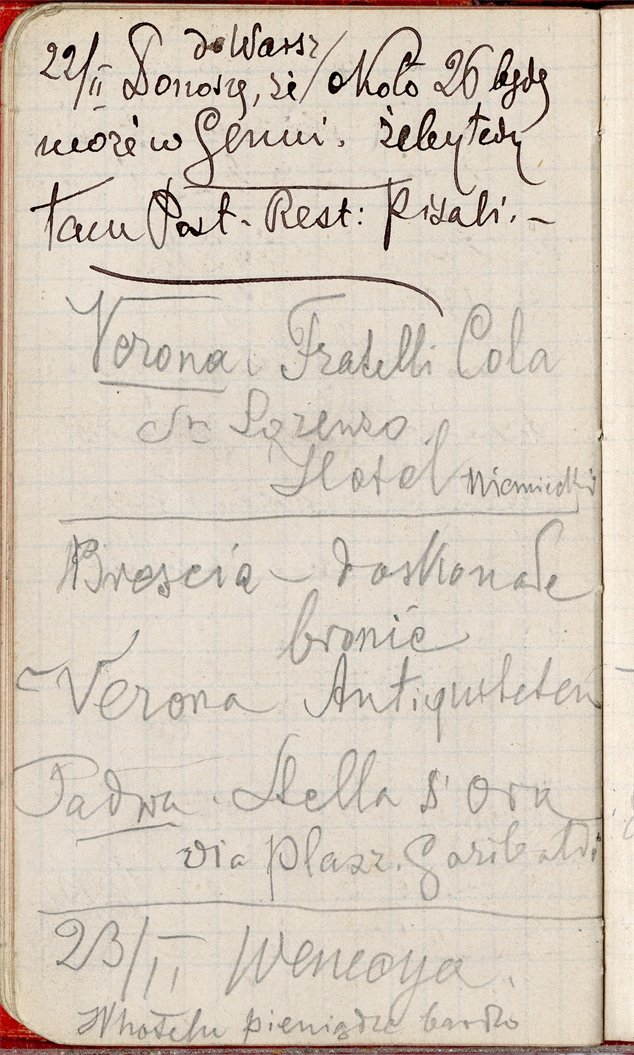 do Warsz
22/II Donoszę, że około 26 będę
może w Genui. żeby tedy
tam Post-Rest: pisali.-
Verona Fratelli Cola
Sn Lorenzo
Hotel Niemiecki
Brescia - doskonałe
bronie
Verona Antiquiteten
Padwa. Stella d'Oro
via Piazz. Garibaldi
23/II Wenecya.
W hotelu pieniądze bardzo